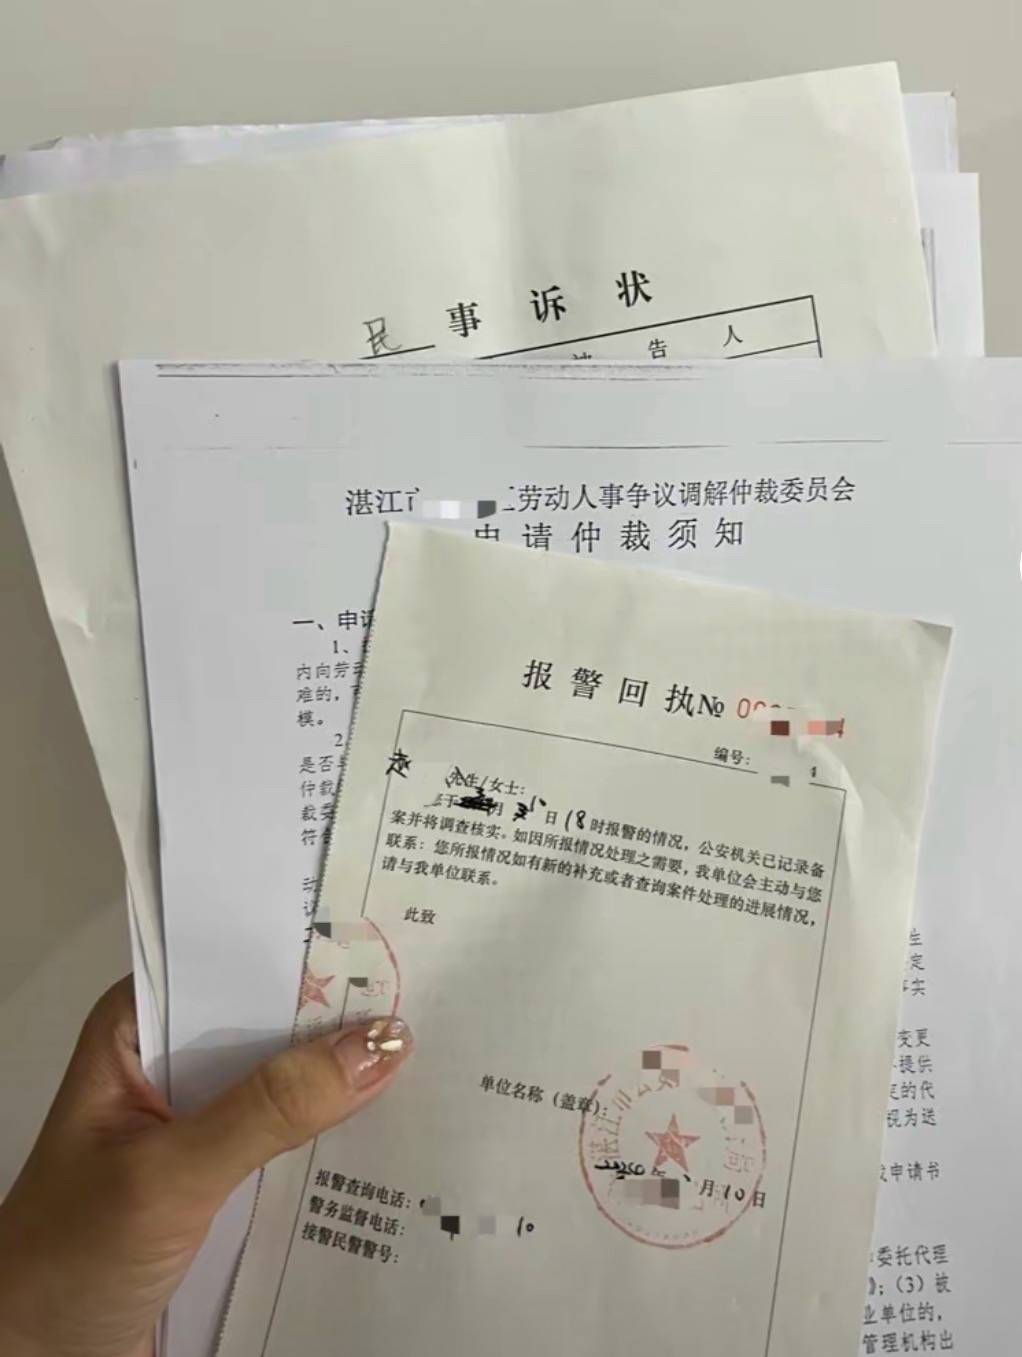 民事诉状
告 人
湛江市 劳动人事争议调解仲裁委员会
申请仲裁须知
一、申请
1、
内向劳动
难的，
模。
2
是否
仲裁
裁委
符合
报警回执№
编号：
赵 先生/女士：
月 日 18时报警的情况，公安机关已记录备
案并将调查核实。如因所报情况处理之需要，我单位会主动与您
联系；您所报情况如有新的补充或者查询案件处理的进展情况，
请与我单位联系。
此致
单位名称（盖章）：
湛江市公
年 月10日
报警查询电话：
警务监督电话： 10
接警民警警号：
生
定
事实
变更
提供
定的代
视为送
申请书
委托代理
；（3）被
业单位的，
管理机构出